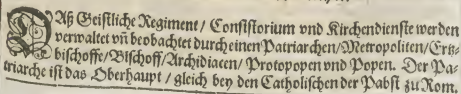 DAß Geistliche Regiment / Consistorium vnd Kirchendienste werden
verwaltet vñ beobachtet durch einen Patriarchen / Metropoliten / Ertz-
bischoffe / Bischoff / Archidiacen / Protopopen vnd Popen. Der Pa-
triarche ist das Oberhaupt / gleich bey den Catholischen der Pabst zu Rom.